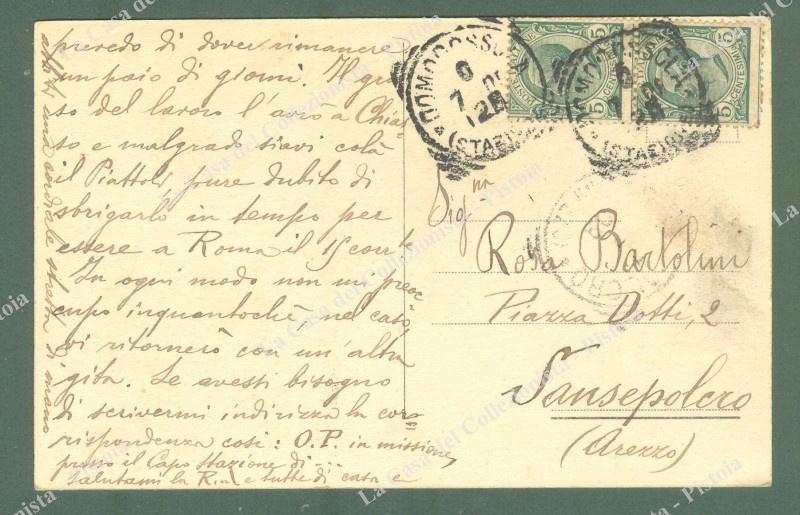 prevedo di dover rimanere
un paio di giorni. Il gros=
so del lavoro l'avrò a Chias=
so e malgrado siavi colà
il Piattoli, pure dubito di
sbrigarlo in tempo per
essere a Roma il 15 corrte
In ogni modo non mi preoc=
cupo inquantochè, nel caso,
vi ritornerò con un'altra
gita. Se avessi bisogno
di scrivermi indirizza la cor=
rispondenza così: O.P. in missione,
presso il Capo Stazione di ....
Salutami la R.na e tutti di casa e
una cordiale stretta di mano
DOMODOSSOLA
(STAZIONE)
DOMODOSSOLA
(STAZIONE)
5 CENTESIMI 5
5 CENTESIMI 5
Signa
Rosa Bartolini
Piazza Dotti, 2
Sansepolcro
(Arezzo)
La Casa del Collezionista - Pistoia